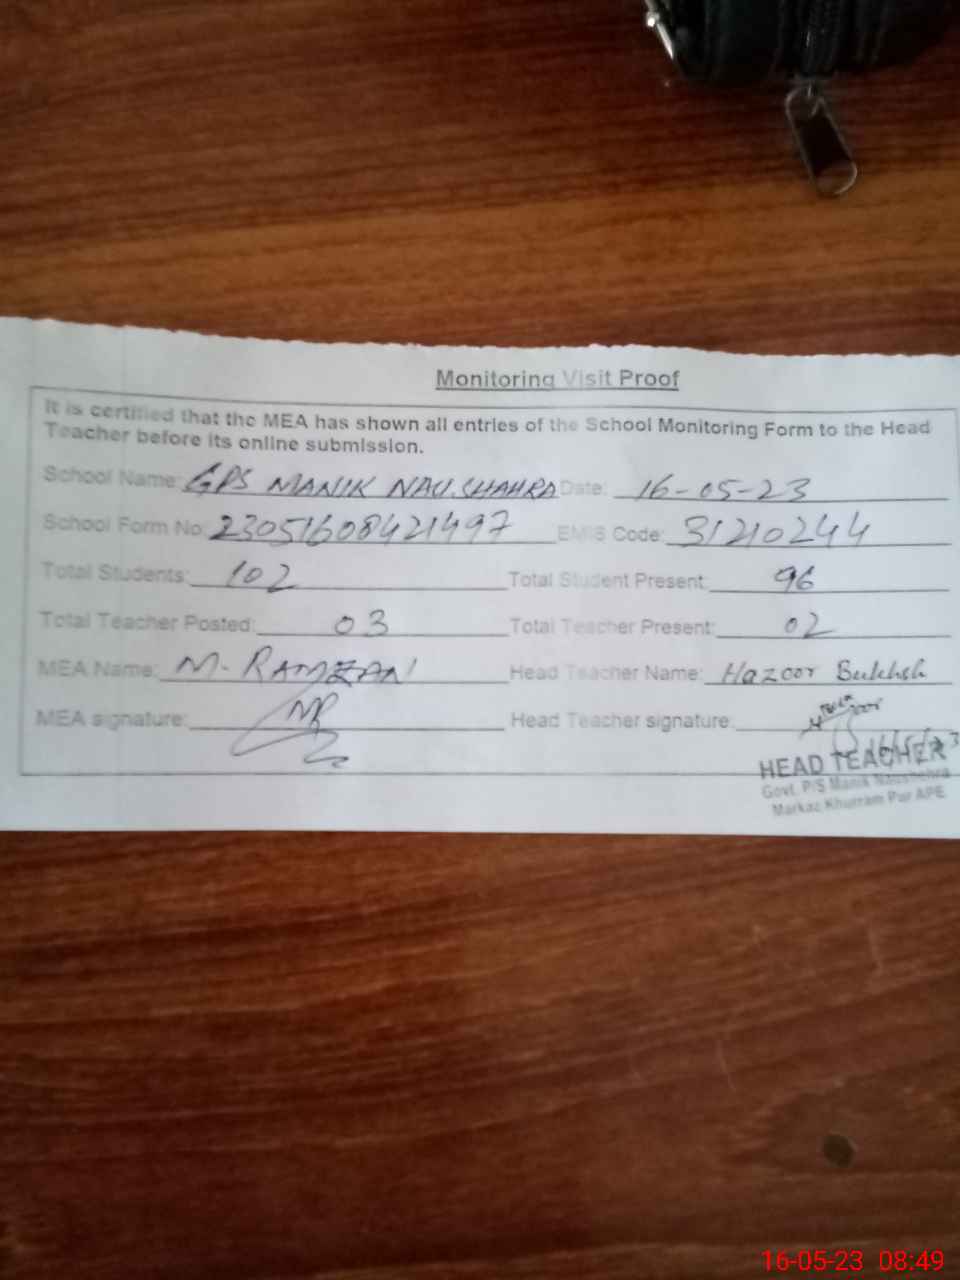 Monitoring Visit Proof
It is certified that the MEA has shown all entries of the School Monitoring Form to the Head
Teacher before its online submission.
School Name: GPS MANIK NAU.SHAHRA Date: 16-05-23
School Form No: 23051608421497 EMIS Code: 31210244
Total Students: 102 Total Student Present: 96
Total Teacher Posted: 03 Total Teacher Present: 02
MEA Name: M. RAMZAN Head Teacher Name: Hazoor Bukhsh
MEA signature: MR Head Teacher signature:
HEAD TEACHER
Govt. P/S Manik Naushehra
Markaz Khurram Pur APE
16-05-23 08:49